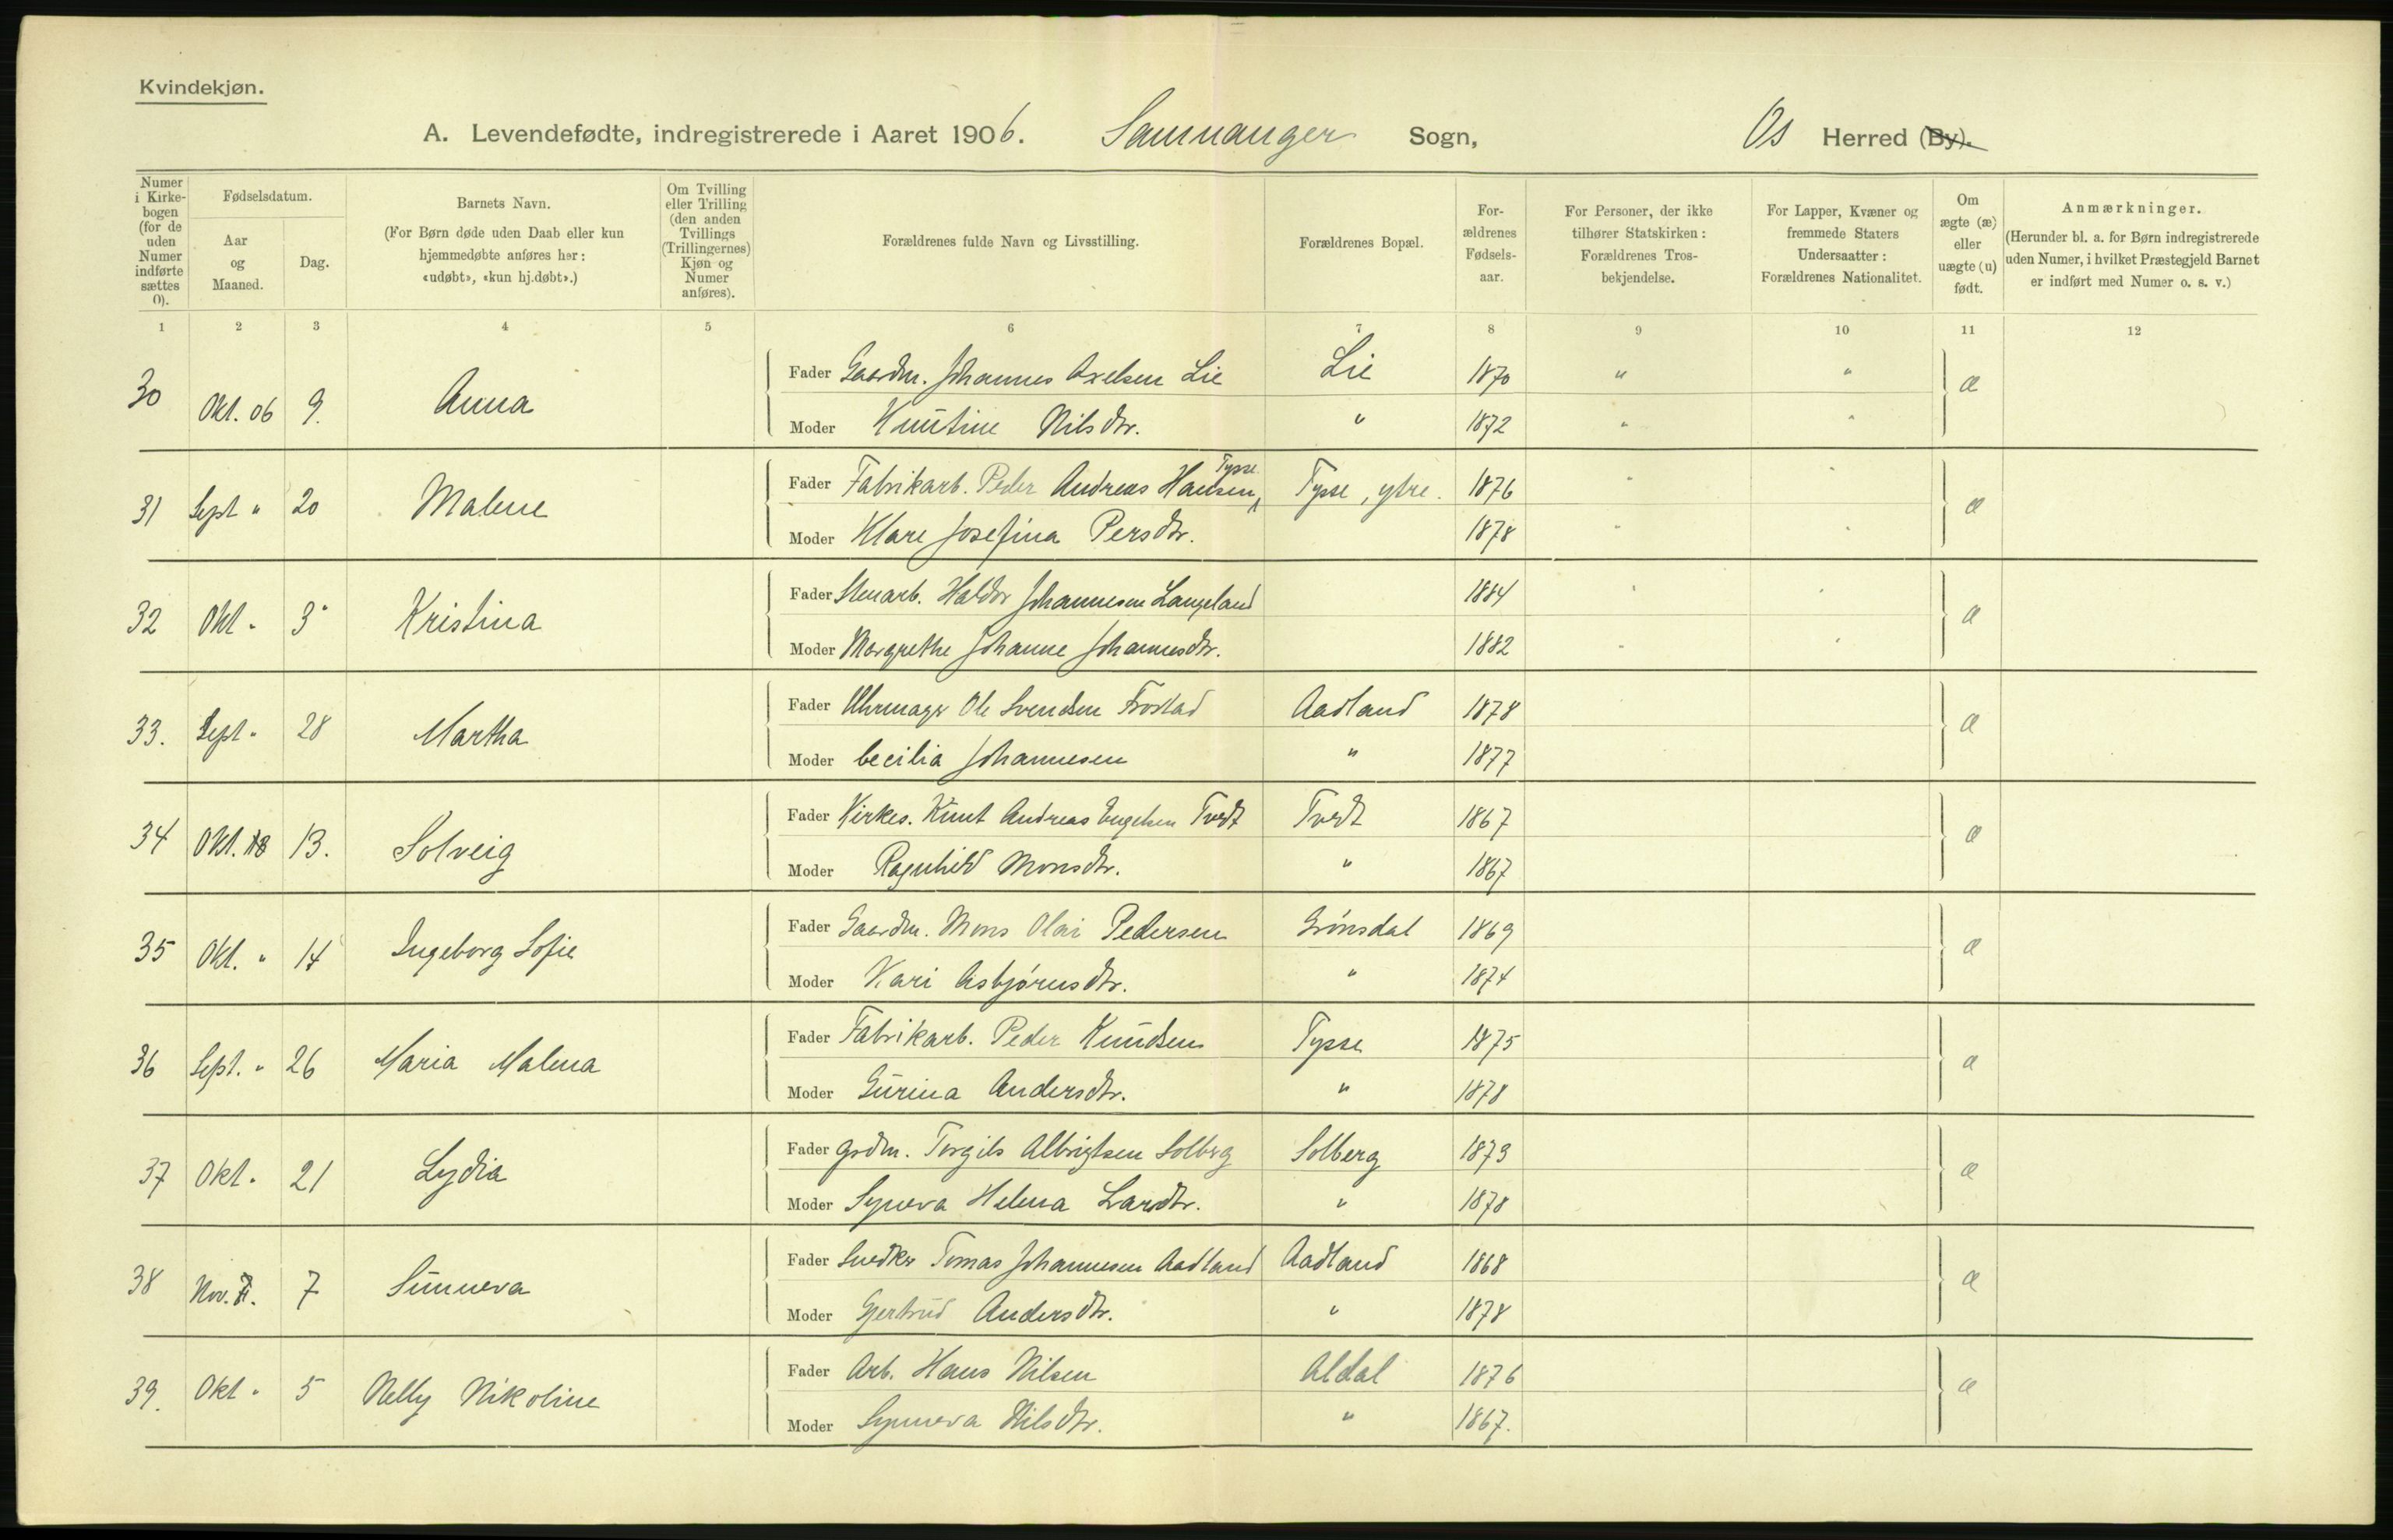 Kvindekjøn.
A. Levendefødte, indregistrerede i Aaret 1906. Samnanger Sogn, Os Herred (By).
Numer i Kirkebogen (for de uden Numer indførte sættes 0).
Fødselsdatum.
Aar og Maaned.
Dag.
Barnets Navn.
(For Børn døde uden Daab eller kun hjemmedøbte anføres her: «udøbt», «kun hj.døbt».)
Om Tvilling eller Trilling (den anden Tvillings (Trillingernes) Kjøn og Numer anføres).
Forældrenes fulde Navn og Livsstilling.
Forældrenes Bopæl.
Forældrenes Fødselsaar.
For Personer, der ikke tilhører Statskirken: Forældrenes Trosbekjendelse.
For Lapper, Kvæner og fremmede Staters Undersaatter: Forældrenes Nationalitet.
Om ægte (æ) eller uægte (u) født.
Anmærkninger.
(Herunder bl. a. for Børn indregistrerede uden Numer, i hvilket Præstegjeld Barnet er indført med Numer o. s. v.)
1 2 3 4 5 6 7 8 9 10 11 12
30 Okt. 06 9. Anna Fader Gaardm. Johannes Axelsen Lie Lie 1870 " " æ
Moder Knutine Nilsdtr. " 1872 " "
31 Sept " 20 Malene Fader Fabrikarb. Peder Andreas Hansen Tysse Tysse, ytre. 1876 " " æ
Moder Klare Josefina Persdtr. 1878 " "
32 Okt " 3 Kristina Fader Stenarb. Haldor Johannesen Langeland 1884 " " æ
Moder Margrethe Johanne Johannesdtr. 1882 " "
33. Sept " 28 Martha Fader Uhrmager Ole Svendsen Frostad Aadland 1878 æ
Moder Cecilia Johannesen " 1877
34 Okt. 13. Solveig Fader Kirkes. Knut Andreas Engelsen Tvedt Tvedt 1867 æ
Moder Ragnhild Monsdtr. " 1867
35 Okt. " 14 Ingeborg Sofie Fader Gaardm. Mons Olai Pedersen Grønsdal 1869 æ
Moder Kari Asbjørnsdtr. " 1874
36 Sept. " 26 Maria Malena Fader Fabrikarb. Peder Knudsen Tysse 1875 æ
Moder Gurina Andersdtr. " 1878
37 Okt " 21 Lydia Fader Grdm. Torgils Albrigtsen Solberg Solberg 1873 æ
Moder Syneva Helena Larsdtr. " 1878
38 Nov. 7 Sunneva Fader Snedker Tomas Johannesen Aadland Aadland 1868 æ
Moder Gjertrud Andersdtr. " 1878
39. Okt " 5 Nelly Nikoline Fader Arb. Hans Nilsen Aldal 1876 æ
Moder Synneva Nilsdtr. " 1867.